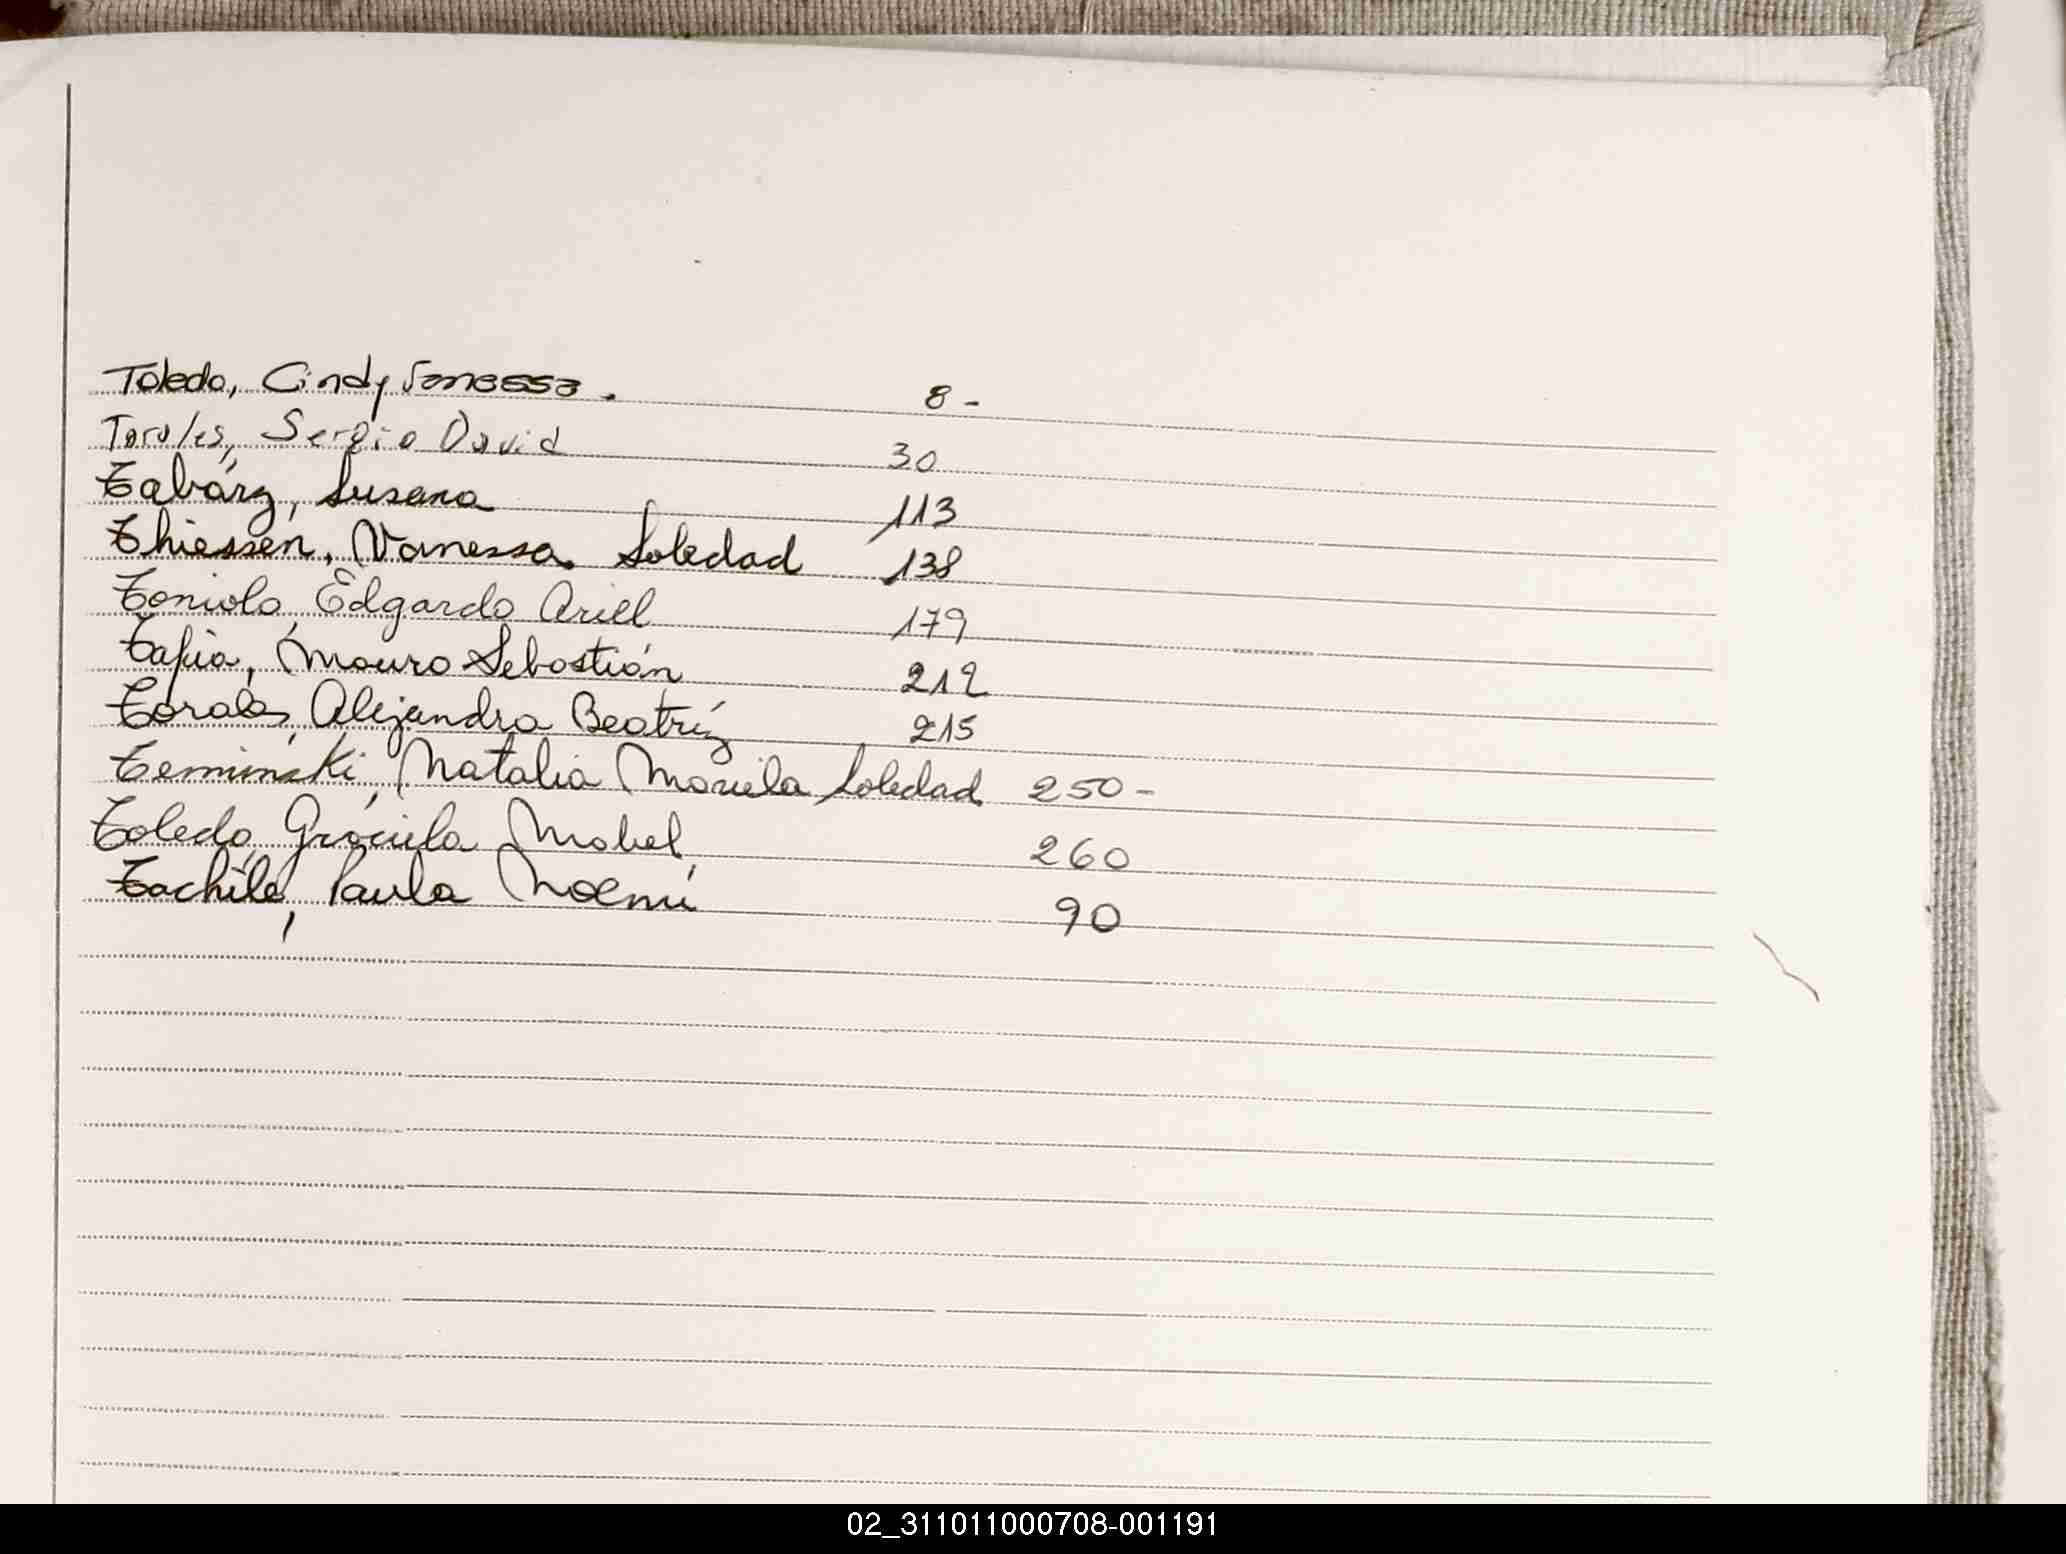 Toledo, Cindy Vanessa. 8-
Torales, Sergio David 30
Tabárz, Susana 113
Thiessen, Vanessa Soledad 138
Toniolo, Edgardo Ariel 179
Tapia, Mauro Sebastián 212
Torales, Alejandra Beatríz 215
Teminski, Natalia Mariela Soledad 250-
Toledo, Graciela Mabel, 260
Tachile, Paula Noemí 90
02_311011000708-001191